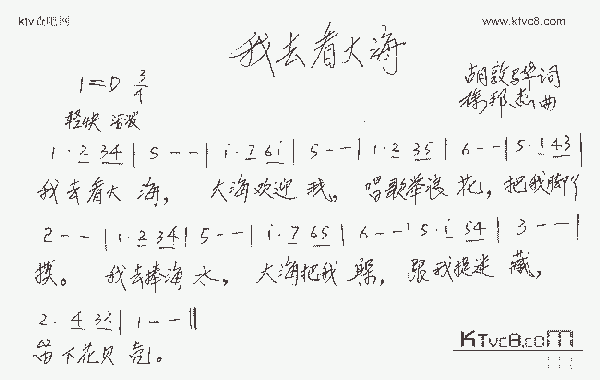 ktv www.ktvc8.com
我去看大海
1=D 3/4 胡敦 华词
轻快 活泼 徐邦杰曲
1·2 34 | 5 - - | i·7 6i | 5 - - | 1·2 35 | 6 - - | 5·1 43 |
我去看大 海, 大海欢迎 我。 唱歌举浪 花, 把我脚丫
2 - - | 1·2 34 | 5 - - | i·7 65 | 6 - - | 5·i 54 | 3 - - |
摸。 我去捧海 水, 大海把我 躲, 跟我捉迷 藏,
2·4 32 | 1 - - ‖
留下花贝 壳。
KTvc8.com